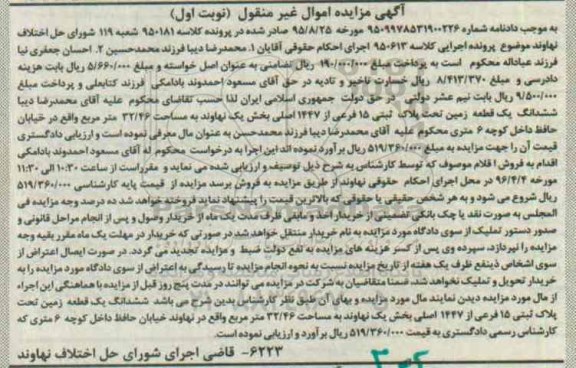 آگهی مزایده اموال غیر منقول (نوبت اول)
به موجب دادنامه شماره ۹۵۰۹۹۷۸۵۳۱۹۰۰۲۲۶ مورخه ۹۵/۸/۲۵ صادر شده در پرونده کلاسه ۹۵۰۱۸۱ شعبه ۱۱۹ شورای حل اختلاف
نهاوند موضوع پرونده اجرایی کلاسه ۹۵۰۶۱۳ اجرای احکام حقوقی آقایان ۱. محمدرضا دیبا فرزند محمدحسین ۲. احسان جعفری نیا
فرزند عبداله محکوم است به پرداخت مبلغ ۱۹۰/۰۰۰/۰۰۰ ریال تضامنی به عنوان اصل خواسته و مبلغ ۵/۶۶۰/۰۰۰ ریال بابت هزینه
دادرسی و مبلغ ۸/۴۱۳/۳۷۰ ریال خسارت تاخیر و تادیه در حق آقای مسعود احمدوند بادامکی فرزند کتابعلی و پرداخت مبلغ
۹/۵۰۰/۰۰۰ ریال بابت نیم عشر دولتی در حق دولت جمهوری اسلامی ایران لذا حسب تقاضای محکوم علیه آقای محمدرضا دیبا
ششدانگ یک قطعه زمین تحت پلاک ثبتی ۱۵ فرعی از ۱۴۴۷ اصلی بخش یک نهاوند به مساحت ۳۲/۴۶ متر مربع واقع در خیابان
حافظ داخل کوچه ۶ متری محکوم علیه آقای محمدرضا دیبا فرزند محمدحسن به عنوان مال معرفی نموده است و ارزیابی دادگستری
قیمت آن را جهت مزایده به مبلغ ۵۱۹/۳۶۰/۰۰۰ ریال برآورد نموده اند این اجرا به درخواست محکوم له آقای مسعود احمدوند بادامکی
اقدام به فروش اقلام موصوف که توسط کارشناس به شرح ذیل توصیف و ارزیابی شده می نماید و مقرر است از ساعت ۱۰:۳۰ الی ۱۱:۳۰
مورخه ۹۶/۴/۴ در محل اجرای احکام حقوقی نهاوند از طریق مزایده به فروش برسد مزایده از قیمت پایه کارشناسی ۵۱۹/۳۶۰/۰۰۰
ریال شروع می شود و به هر شخص حقیقی یا حقوقی که بالاترین قیمت را پیشنهاد نماید فروخته خواهد شد ده درصد وجه مزایده فی
المجلس به صورت نقد یا چک بانکی تضمینی از خریدار اخذ و مابقی ظرف مدت یک ماه از خریدار وصول و پس از انجام مراحل قانونی و
صدور دستور تملیک از سوی دادگاه مورد مزایده به نام خریدار منتقل خواهد شد در صورتی که خریدار در مهلت یک ماه مقرر بقیه وجه
مزایده را نپردازد، سپرده وی پس از کسر هزینه های مزایده به نفع دولت ضبط و مزایده تجدید می گردد. در صورت ایصال اعتراض از
سوی اشخاص ذینفع ظرف یک هفته از تاریخ مزایده نسبت به نحوه انجام مزایده تا رسیدگی به اعتراض از سوی دادگاه مورد مزایده را به
خریدار تحویل و تملیک نخواهد شد. ضمنا متقاضیان به شرکت در مزایده می توانند در مدت پنج روز قبل از مزایده با هماهنگی این اجراء
از مال مورد مزایده دیدن نمایند مال مورد مزایده و بهای آن طبق نظر کارشناس بدین شرح می باشد ششدانگ یک قطعه زمین تحت
پلاک ثبتی ۱۵ فرعی از ۱۴۴۷ اصلی بخش یک نهاوند به مساحت ۳۲/۴۶ متر مربع واقع در نهاوند خیابان حافظ داخل کوچه ۶ متری که
کارشناس رسمی دادگستری به قیمت ۵۱۹/۳۶۰/۰۰۰ ریال برآورد و ارزیابی نموده است.
۶۲۲۳- قاضی اجرای شورای حل اختلاف نهاوند